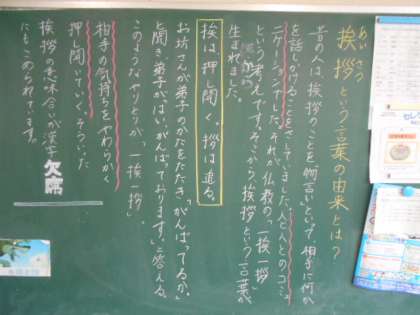 あいさつ
挨拶という言葉の由来とは?
昔の人は、挨拶のことを「物言い」といって相手に何か
を話しかけることをさしていました。人と人とのコミュ
ニケーションでした。それが、仏教の「一挨一拶」
という考えです。そこから挨拶という言葉が
生まれました。
挨は、押し開く。拶は迫る。
お坊さんが弟子のかたをたたき「がんばってるか。」
と聞き弟子が「はい。がんばっております。」と答える。
このようなやりとりが、「一挨一拶」
相手の気持ちをやわらかく
押し開いていく。そういった
挨拶の意味合いが漢字
にもこめられています。
欠席